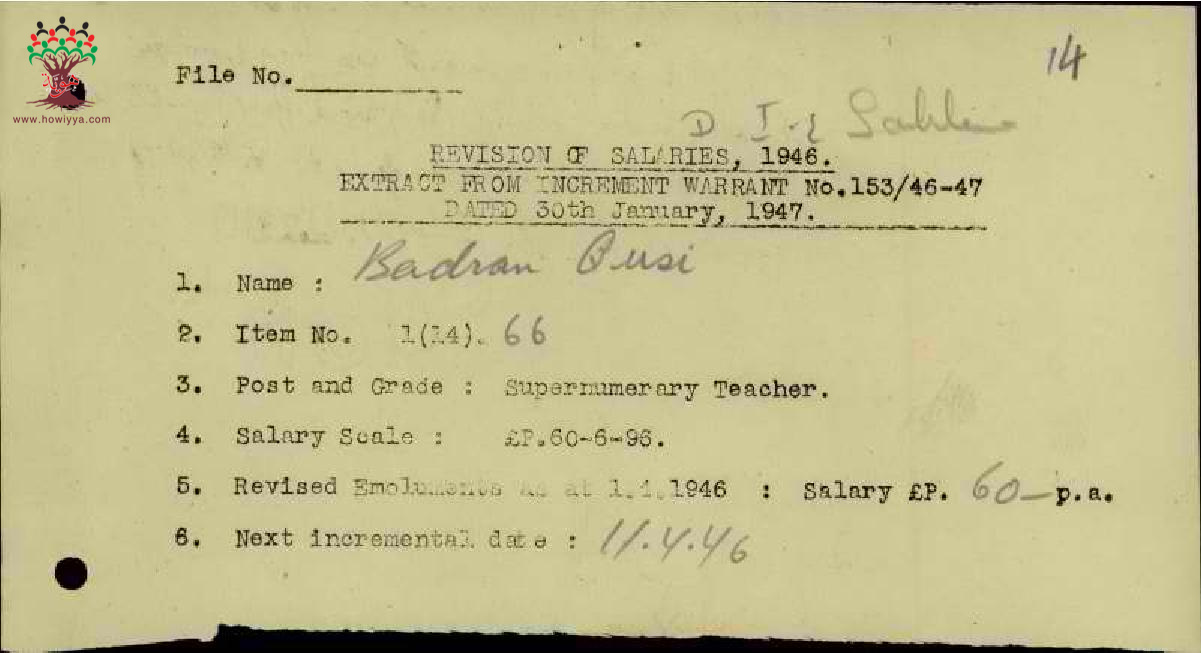 14
File No.
www.howiyya.com
D. I.
REVISION OF SALARIES, 1946.
EXTRACT FROM INCREMENT WARRANT No.153/46-47
DATED 30th January, 1947.
1. Name : Badran Qusi
2. Item No. 1(14). 66
3. Post and Grade : Supernumerary Teacher.
4. Salary Scale : £P.60-6-96.
5. Revised Emoluments as at 1.4.1946 : Salary £P. 60— p.a.
6. Next incremental date : 11.4.46